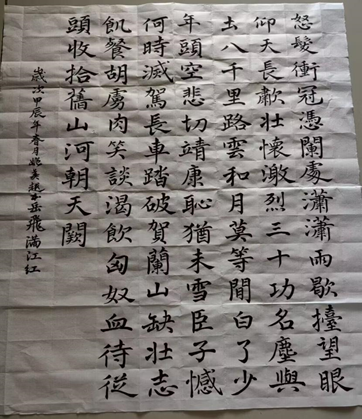 怒髮衝冠憑闌處瀟瀟雨歇擡望眼
仰天長歗壯懷激烈三十功名塵與
土八千里路雲和月莫等閒白了少
年頭空悲切靖康恥猶未雪臣子憾
何時滅駕長車踏破賀蘭山缺壯志
飢餐胡虜肉笑談渴飲匈奴血待從
頭收拾舊山河朝天闕
歲次甲辰年春月岳飛滿江紅